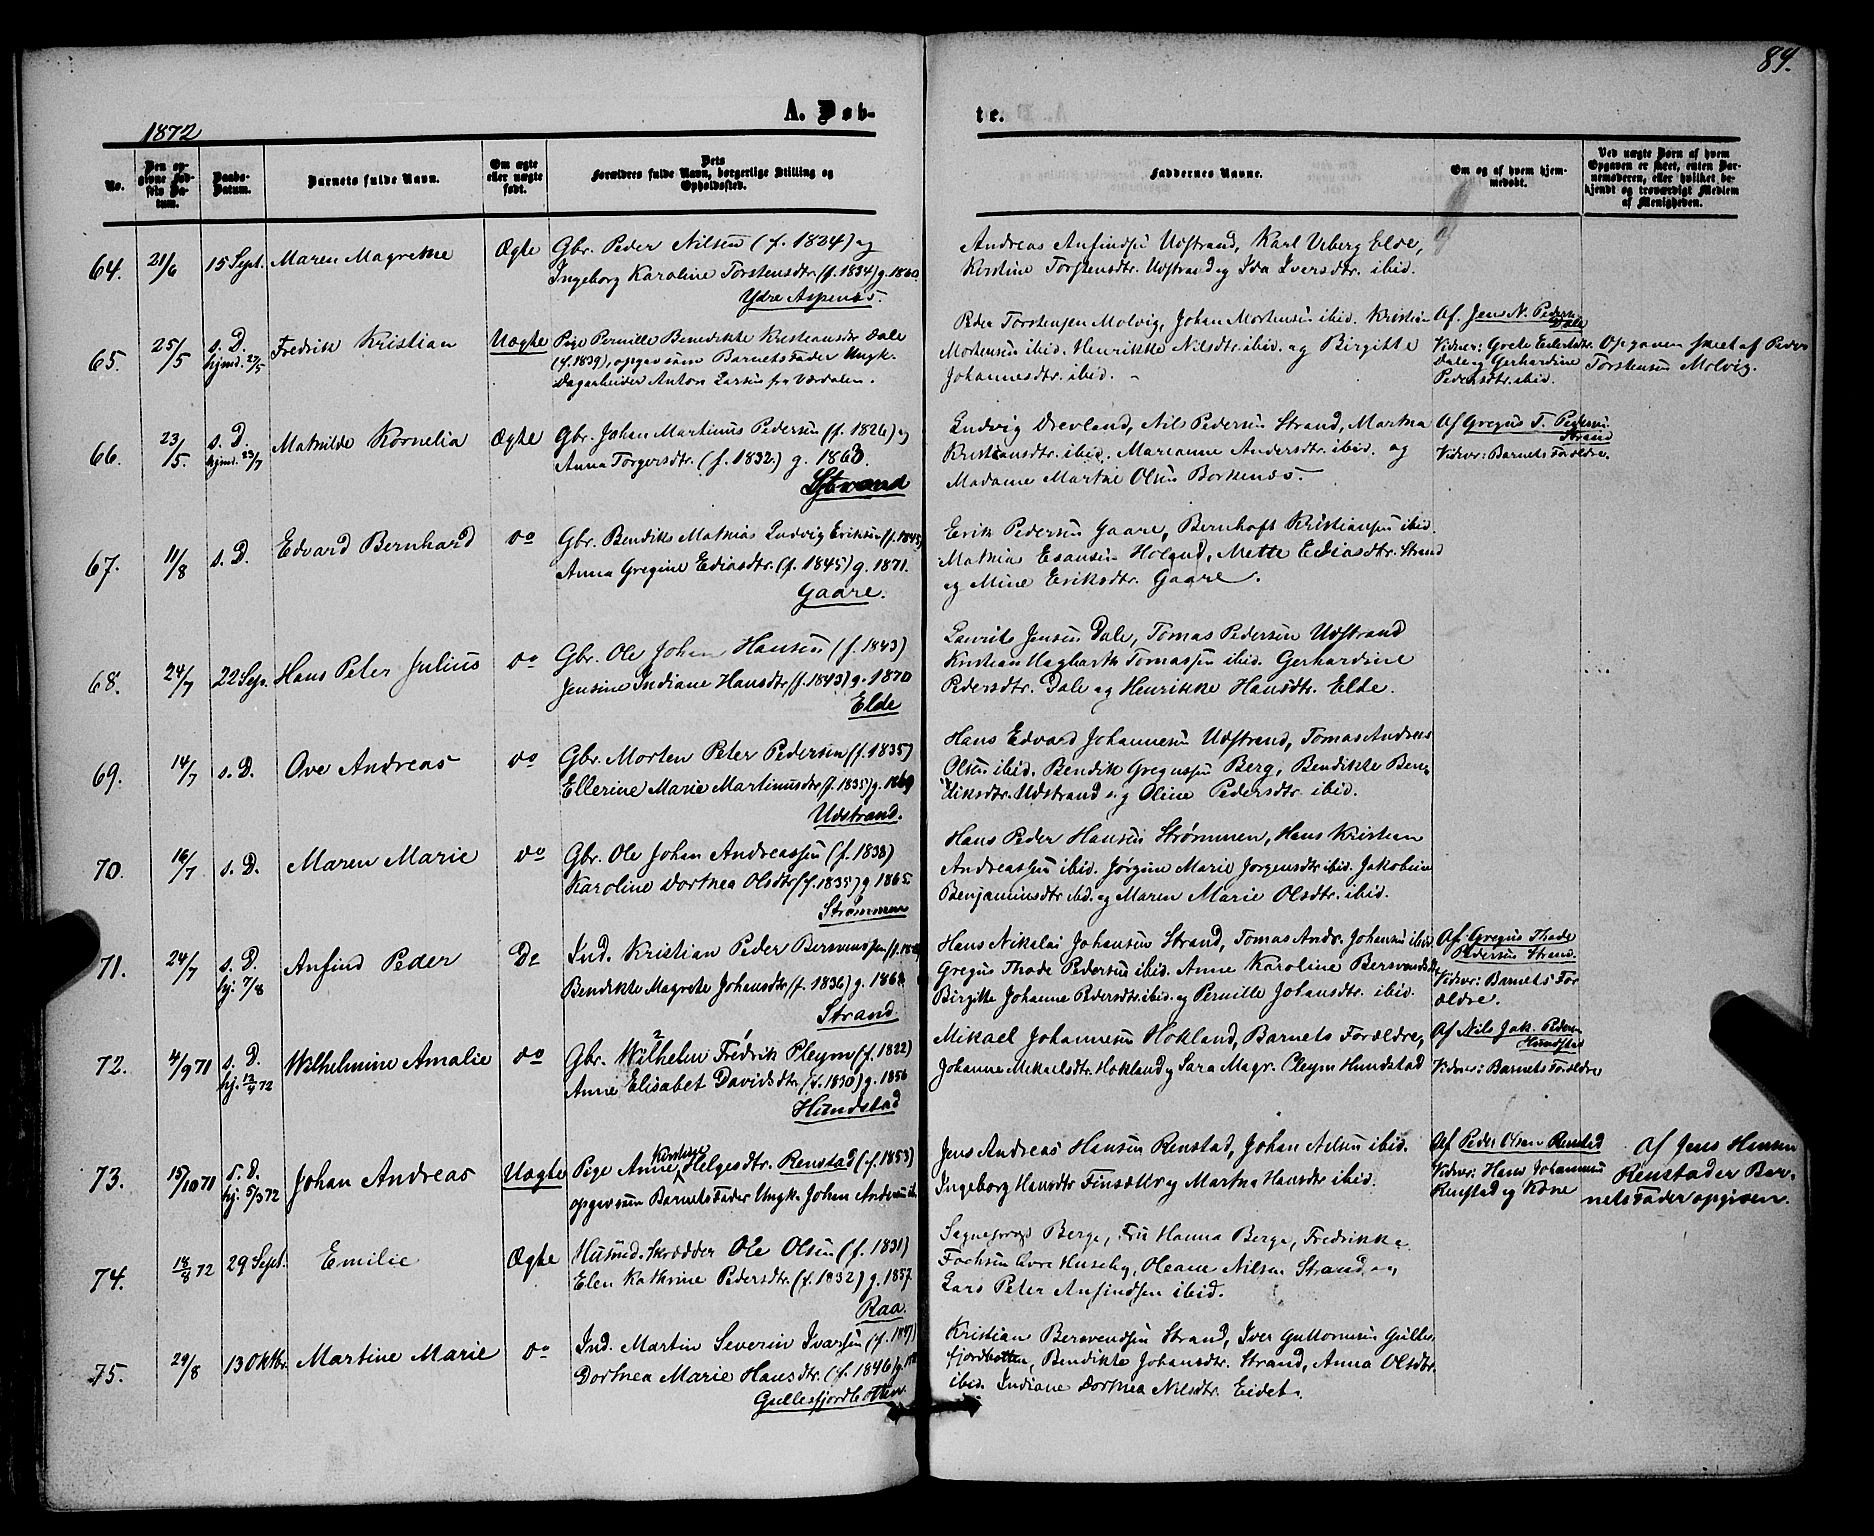 89.
1872
A. Døb-
te.
No.
Den op-
givne Fød-
sels Da-
tum.
Daabs-
Datum.
Barnets fulde Navn.
Om ægte
eller uægte
født.
Dets
Forældres fulde Navn, borgerlige Stilling og
Opholdssted.
Faddernes Navne.
Om og af hvem hjem-
medøbt.
Ved uægte Børn af hvem
Opgaven er skeet, enten Bar-
nemoderen, eller hvilket be-
kjendt og troværdigt Medlem
af Menigheden.
64. 21/6 15 Sept. Maren Magrethe Ægte Gbr. Peder Nilsen (f. 1824) og
Ingeborg Karoline Torstensdtr. (f. 1834) g. 1860.
Ydre Aspenæs.
Andreas Anfindsen Udstrand, Karl Viberg Elde,
Kirstine Torstensdtr. Udstrand og Ida Iversdtr. ibid.
65. 25/5 s. D. Fredrik Kristian Uægte Pige Pernille Benedikte Kristiansdtr Dale
hjmd. 27/5
(f. 1839), opgav som Barnets Fader Ungk.
Dagarbeider Anton Larsen fra Værdalen.
Peder Torstensen Molvig, Johan Mortensen ibid. Kristian
Mortensen ibid. Henrikke Nilsdtr. ibid. og Birgitte
Johannesdtr. ibid.
Af Jens N. Pedersen
Dale
Vidner: Grete Eilertsdtr.
Dale og Gerhardine
Pedersdtr. ibid.
Opgaven skeet af Peder
Torstensen Molvig.
66. 23/5. s. D. Mathilde Kornelia Ægte Gbr. Johan Martinus Pedersen (f. 1826) og
hjmd. 23/7
Anna Torgersdtr. (f. 1832.) g. 1860.
Strand
Ludvig Drevland, Nils Pedersen Strand, Martha
Kristiansdtr. ibid. Marianne Andersdtr. ibid. og
Madame Marthe Olsen Borkenæs.
Af Gregus T. Pedersen
Strand
Vidner: Barnets Forældre.
67. 11/8 s. D. Edvard Bernhard do Gbr. Bendiks Mathias Ludvig Eriksen (f. 1845)
Anna Gregine Ediasdtr. (f. 1845) g. 1871.
Gaare.
Erik Pedersen Gaare, Bernhoft Kristiansen ibid.
Mathias Esausen Holand, Mette Ediasdtr. Strand
og Mine Eriksdtr. Gaare.
68. 24/7 22 Sep. Hans Peter Julius do Gbr. Ole Johan Hansen (f. 1843)
Jensine Indiane Hansdtr (f. 1843) g. 1870
Elde
Laurits Jensen Dale, Tomas Pedersen Udstrand
Kristian Hagbarth Tomassen ibid. Gerhardine
Pedersdtr. Dale og Henrikke Hansdtr. Elde.
69. 14/7 s. D. Ove Andreas do Gbr. Morten Peter Pedersen (f. 1835)
Ellerine Marie Martinusdtr (f. 1835) g. 1860
Udstrand.
Hans Edvard Johannesen Udstrand, Tomas Andreas
Olsen ibid. Bendik Gregussen Berg, Bendikte Ben-
diksdtr. Udstrand og Oline Pedersdtr. ibid.
70. 16/7 s. D. Maren Marie do Gbr. Ole Johan Andreassen (f. 1838)
Karoline Dorthea Olsdtr (f. 1835) g. 1865.
Strømmen
Hans Peder Hansen Strømmen, Hans Kristian
Andreassen ibid. Jørgine Marie Jørgensdtr. ibid. Jakobine
Benjaminsdtr. ibid. og Maren Marie Olsdtr. ibid.
71. 24/7 s. D. Anfind Peder Do Ind. Kristian Peder Bersvendsen
hj: 7/8
Bendikte Magrete Johansdtr (f. 1836) g.
Strand.
Hans Nikolai Johansen Strand, Tomas Andr. Johansen ibid.
Gregus Thode Pedersen ibid. Anne Karoline Bersvendsdtr
Birgitte Johanne Pedersdtr. ibid. og Pernille Johansdtr. ibid.
Af. Gregus Thode
Pedersen Strand.
Vidner: Barnets For-
ældre.
72. 4/9 71 s. D. Wilhelmine Amalie do Gbr. Wilhelm Fredrik Pleym (f. 1822)
hj. 72
Anne Elisabet Davidsdtr. (f. 1830) g. 1856
Hundstad
Mikael Johannesen Hokland, Barnets Forældre,
Johanne Mikaelsdtr. Hokland og Sara Magr. Pleym Hundstad
Af Nils Jak. Pedersen
Hundstad
Vidner: Barnets Forældre
73. 15/10 71 s. D. Johan Andreas Uægte Pige Anne Kirstine Helgesdtr. Renstad (f. 1853)
hj. 5/3 72
opgav som Barnets Fader Ungk. Johan Andersen ib.
Jens Andreas Hansen Renstad, Johan Nilsen ibid.
Ingeborg Hansdtr Finsæter og Martha Hansdtr. ibid.
Af Peder Olsen Renstad
Vidner: Hans Johannesen
Renstad og Kone
Af Jens Hansen
Renstad er Bar-
nets Fader opgiven.
74. 18/8 72 29 Sept. Emilie Ægte Husmd. Skrædder Ole Olsen (f. 1831)
Elen Kathrine Pedersdtr. (f. 1832) g. 1857.
Raa.
Sogneprest Berge, Fru Hanna Berge, Fredrikke
Fochsen Øvre Huseby, Oleane Nilsen Strand og
Lars Peter Anfindsen ibid.
75. 29/8 13 Oktbr. Martine Marie do Ind. Martin Severin Ivarsen (f. 1847)
Dorthea Marie Hansdtr. (f. 1846) g.
Gullesfjordbotten.
Kristian Bersvendsen Strand, Iver Guttormsen Gulles-
fjordbotten, Bendikte Johansdtr. Strand, Anna Olsdtr.
ibid. Indiane Dorthea Nilsdtr. Eidet.